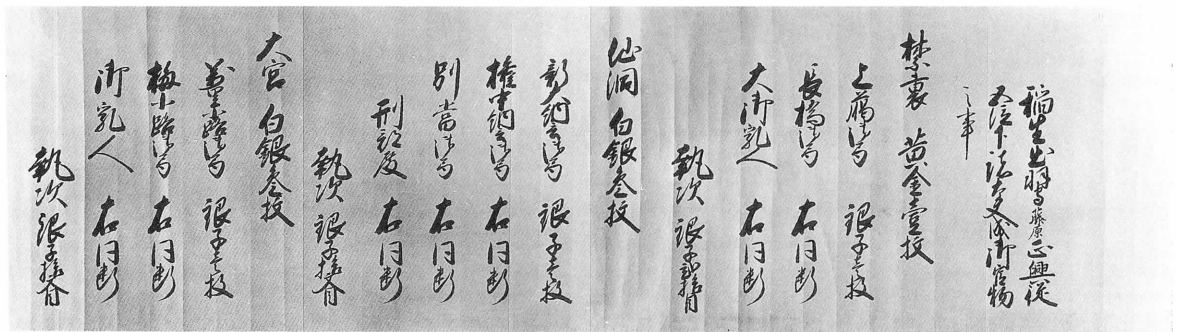 稲生出羽守藤原正興従
五位下諸大夫成御官物
之事
禁裏 黄金壹枚
上臈御局 銀子壹枚
長橋御局 右同断
大御乳人 右同断
執次 銀子貳拾目
仙洞 白銀叁枚
新大納言御局 銀子壹枚
権中納言御局 右同断
別當御局 右同断
刑部殿 右同断
執次 銀子拾目
大宮 白銀叁枚
万里小路御局 銀子壹枚
梅小路御局 右同断
御乳人 右同断
執次 銀子拾目